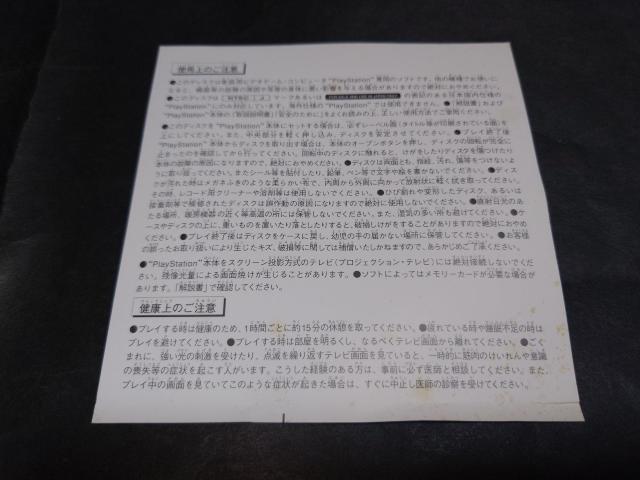 使用上のご注意
●このディスクは家庭用ビデオゲーム・コンピュータ“PlayStation”専用のソフトです。他の機種でお使いに
なると、機器等の故障の原因や耳等の身体に悪い影響を与える場合がありますので絶対におやめください。
●このディスクは、NTSC J マークあるいは の表記のある日本国内仕様の
“PlayStation”にのみ対応しています。海外仕様の“PlayStation”では使用できません。●「解説書」および
“PlayStation”本体の「取扱説明書」「安全のために」をよくお読みの上、正しい使用方法でご愛用ください。
●このディスクを“PlayStation”本体にセットする場合は、必ずレーベル面(タイトル等が印刷されている面)を
上にしてください。また、中央部分を軽く押し込み、ディスクを安定させてください。●プレイ終了後
“PlayStation”本体からディスクを取り出す場合は、本体のオープンボタンを押し、ディスクの回転が完全に
止まったのを確認してから行ってください。回転中のディスクに触れると、けがをしたりディスクを傷つけたり
本体の故障の原因になりますので、絶対におやめください。●ディスクは両面とも、指紋、汚れ、傷等をつけないよ
うに取り扱ってください。またシール等を貼付したり、鉛筆、ペン等で文字や絵を書かないでください。●ディス
クが汚れた時はメガネふきのような柔らかい布で、内周から外周に向かって放射状に軽く拭き取ってください。
その時、レコード用クリーナーや溶剤等は使用しないでください。●ひび割れや変形したディスク、あるいは
接着剤等で補修されたディスクは誤作動の原因になりますので絶対に使用しないでください。●直射日光のあ
たる場所、暖房機器の近く等高温の所には保管しないでください。また、湿気の多い所も避けてください。●ケ
ースやディスクの上に、重いものを置いたり落としたりすると、破損しけがをすることがありますので絶対におやめ
ください。●プレイ終了後はディスクをケースに戻し、幼児の手の届かない場所に保管してください。●お客様
の誤ったお取り扱いにより生じたキズ、破損等に関しては補償いたしかねますので、あらかじめご了承ください。
●“PlayStation”本体をスクリーン投影方式のテレビ(プロジェクション・テレビ)には絶対接続しないでくだ
さい。残像光量による画面焼けが生じることがあります。●ソフトによってはメモリーカードが必要な場合が
あります。「解説書」で確認してください。
健康上のご注意
●プレイする時は健康のため、1時間ごとに約15分の休憩を取ってください。●疲れている時や睡眠不足の時は
プレイを避けてください。●プレイする時は部屋を明るくし、なるべくテレビ画面から離れてください。●ごく
まれに、強い光の刺激を受けたり、点滅を繰り返すテレビ画面を見ていると、一時的に筋肉のけいれんや意識
の喪失等の症状を起こす人がいます。こうした経験のある方は、事前に必ず医師と相談してください。また、
プレイ中の画面を見ていてこのような症状が起きた場合は、すぐに中止し医師の診察を受けてください。